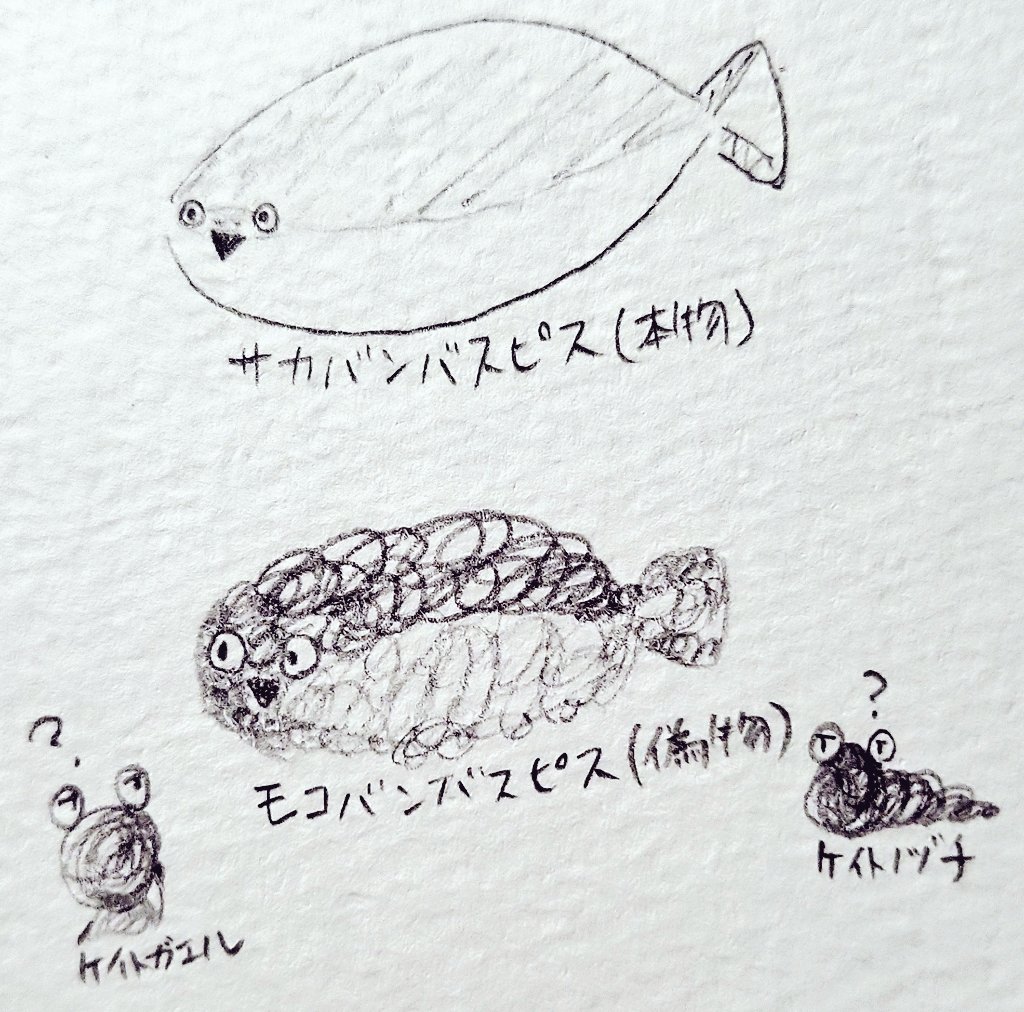 サカバンバスピス(本物)
モコバンバスピス(偽物)
?
?
ケイトノヅチ
ケイトガエル